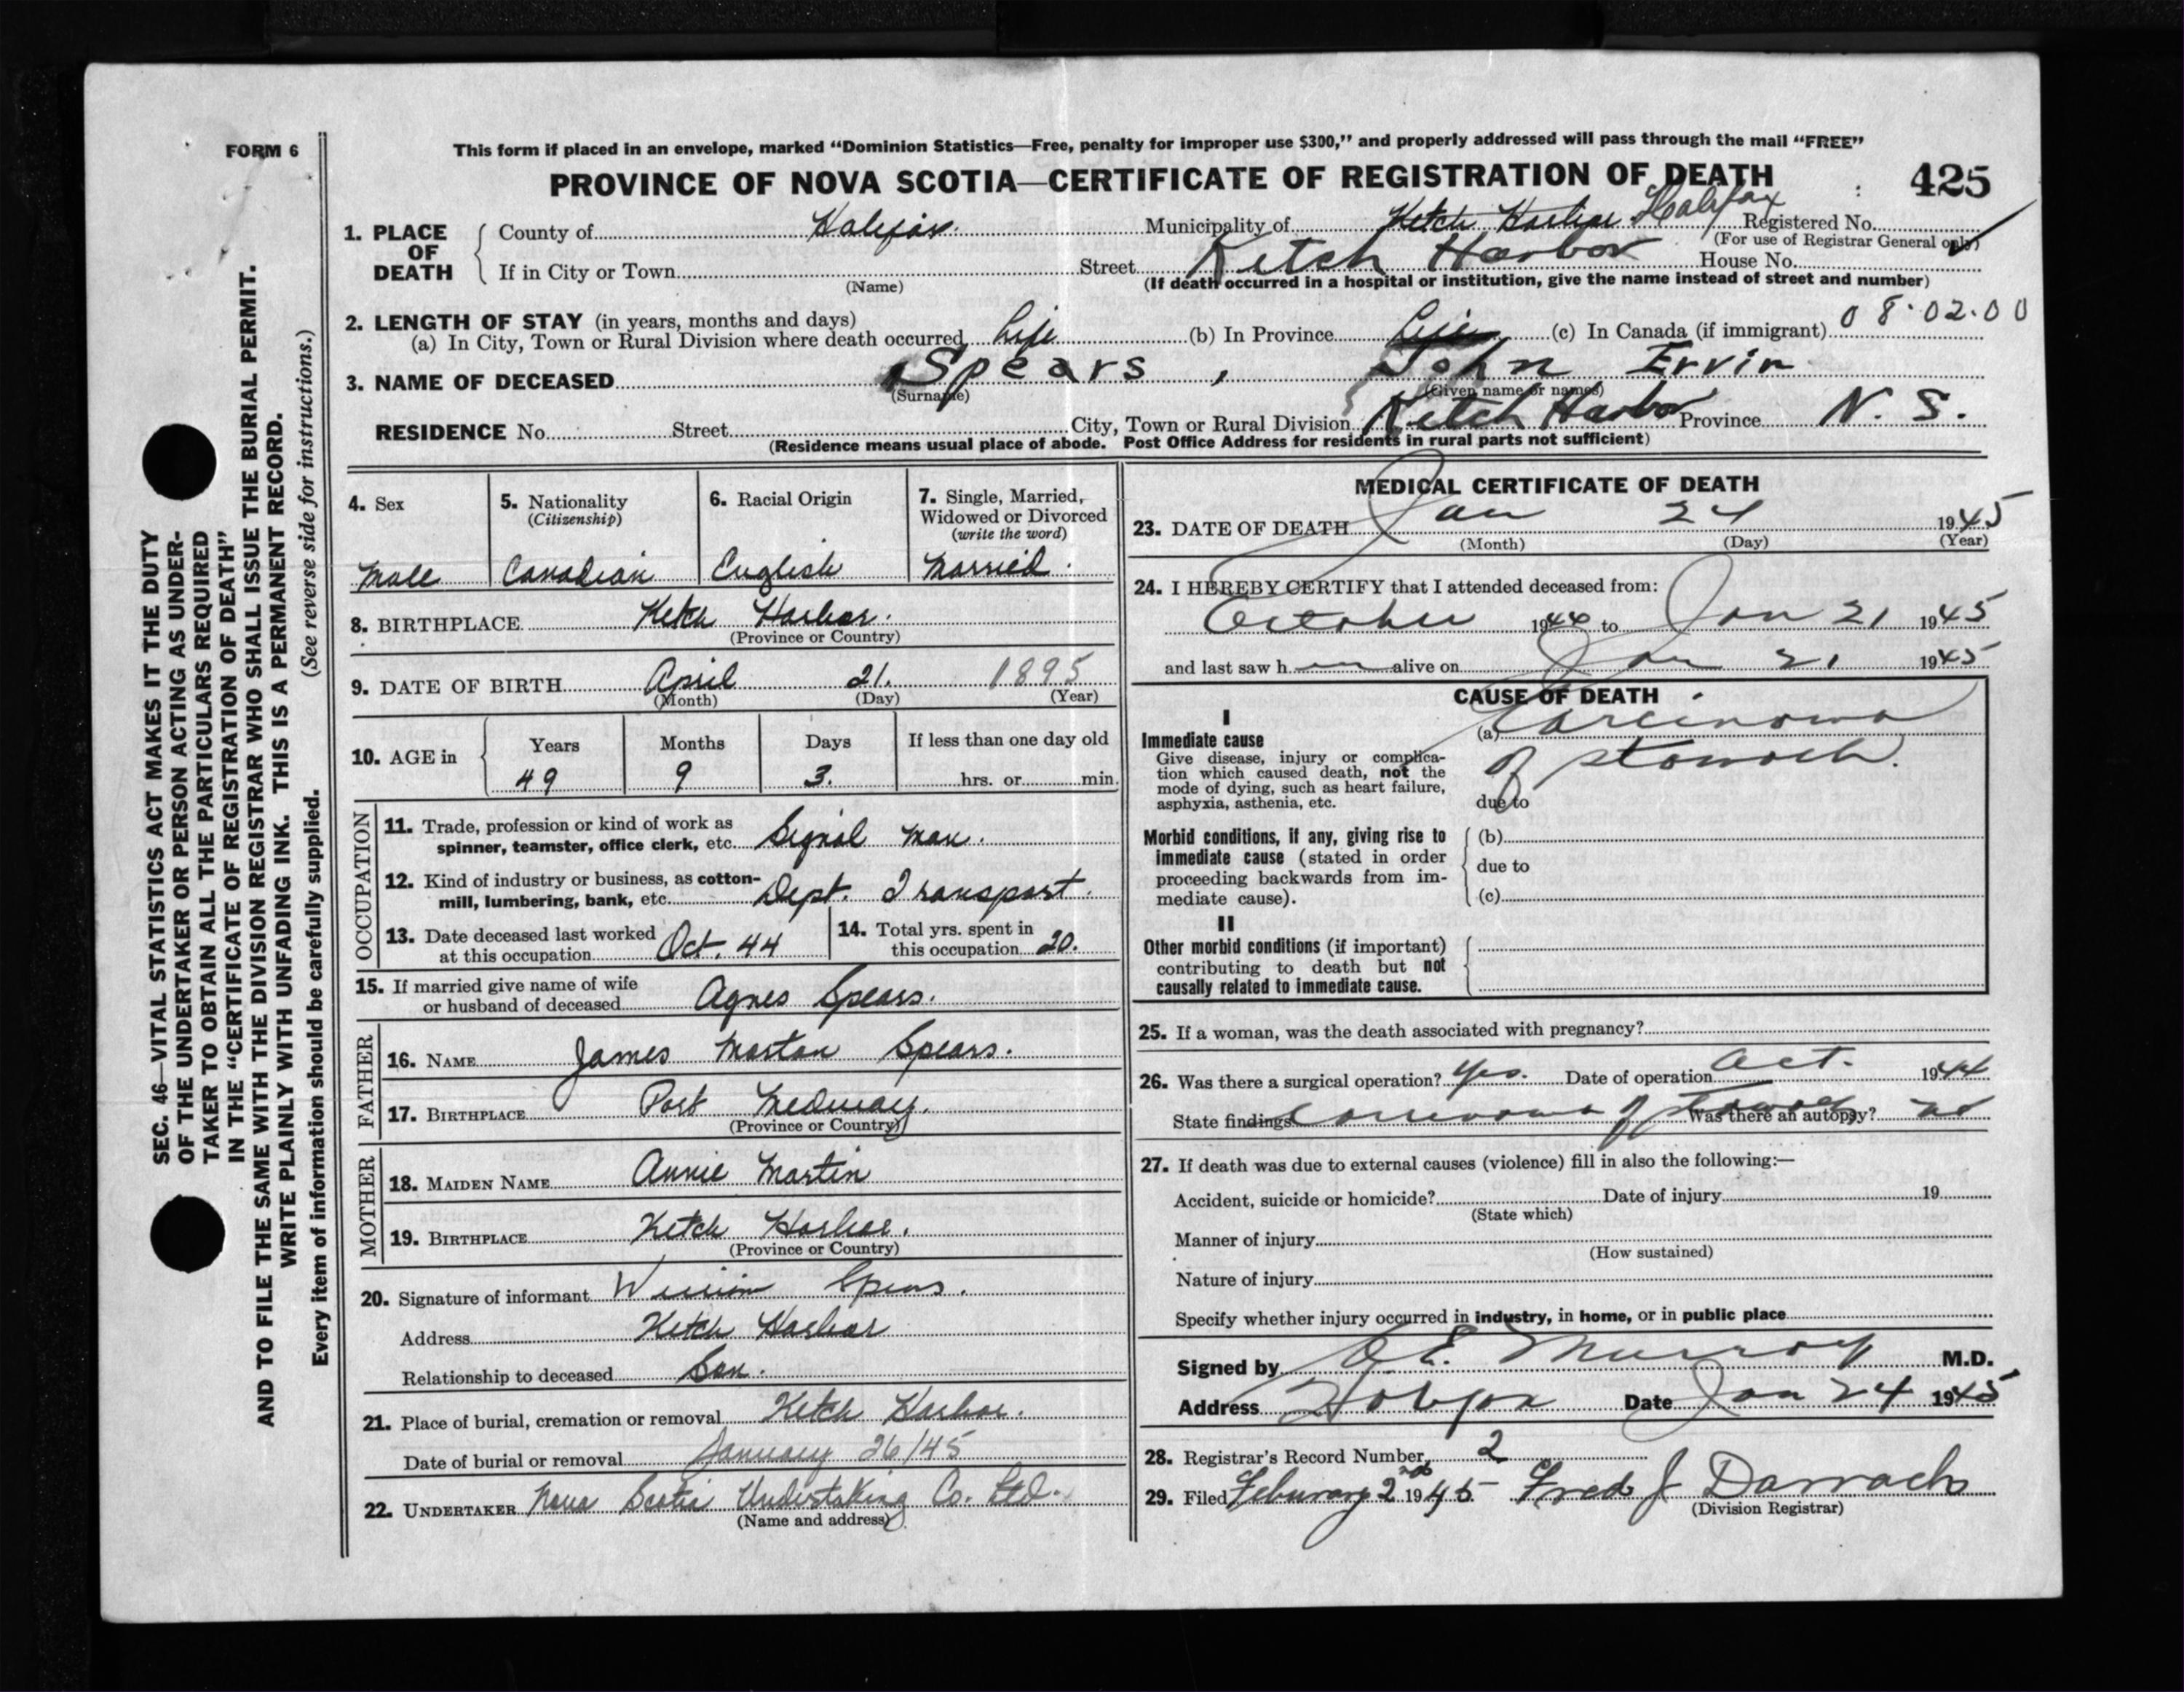 FORM 6
This form if placed in an envelope, marked “Dominion Statistics—Free, penalty for improper use $300,” and properly addressed will pass through the mail “FREE”
PROVINCE OF NOVA SCOTIA—CERTIFICATE OF REGISTRATION OF DEATH 425
1. PLACE OF DEATH County of Halifax. Municipality of Ketch Harbor Halifax Registered No.
(For use of Registrar General only)
If in City or Town Street Ketch Harbor House No.
(Name) (If death occurred in a hospital or institution, give the name instead of street and number)
2. LENGTH OF STAY (in years, months and days)
(a) In City, Town or Rural Division where death occurred Life (b) In Province Life (c) In Canada (if immigrant) 08.02.00
3. NAME OF DECEASED Spears, John Ervin
(Surname) (Given name or names)
RESIDENCE No. Street City, Town or Rural Division Ketch Harbor Province N. S.
(Residence means usual place of abode. Post Office Address for residents in rural parts not sufficient)
4. Sex
Male
5. Nationality
(Citizenship)
Canadian
6. Racial Origin
English
7. Single, Married,
Widowed or Divorced
(write the word)
Married.
8. BIRTHPLACE Ketch Harbor.
(Province or Country)
9. DATE OF BIRTH April 21. 1895
(Month) (Day) (Year)
10. AGE in Years Months Days If less than one day old
49 9 3. hrs. or min.
OCCUPATION
11. Trade, profession or kind of work as
spinner, teamster, office clerk, etc. Signal Man.
12. Kind of industry or business, as cotton-
mill, lumbering, bank, etc. Dept. Transport.
13. Date deceased last worked
at this occupation Oct. 44
14. Total yrs. spent in
this occupation 20.
15. If married give name of wife
or husband of deceased Agnes Spears.
FATHER
16. NAME James Marton Spears.
17. BIRTHPLACE Port Medway.
(Province or Country)
MOTHER
18. MAIDEN NAME Annie Martin
19. BIRTHPLACE Ketch Harbor.
(Province or Country)
20. Signature of informant William Spears.
Address Ketch Harbor
Relationship to deceased Son.
21. Place of burial, cremation or removal Ketch Harbor.
Date of burial or removal January 26/45
22. UNDERTAKER Nova Scotia Undertaking Co. Ltd.
(Name and address)
MEDICAL CERTIFICATE OF DEATH
23. DATE OF DEATH Jan 24 1945
(Month) (Day) (Year)
24. I HEREBY CERTIFY that I attended deceased from:
October 1944 to Jan 21 1945
and last saw h im alive on Jan 21 1945
CAUSE OF DEATH
I
Immediate cause
Give disease, injury or complica-
tion which caused death, not the
mode of dying, such as heart failure,
asphyxia, asthenia, etc.
(a) Carcinoma
of stomach.
due to
Morbid conditions, if any, giving rise to
immediate cause (stated in order
proceeding backwards from im-
mediate cause).
(b)
due to
(c)
II
Other morbid conditions (if important)
contributing to death but not
causally related to immediate cause.
25. If a woman, was the death associated with pregnancy?
26. Was there a surgical operation? Yes. Date of operation Oct. 1944
State findings Carcinoma of Stomach Was there an autopsy? no
27. If death was due to external causes (violence) fill in also the following:—
Accident, suicide or homicide? Date of injury 19
(State which)
Manner of injury
(How sustained)
Nature of injury
Specify whether injury occurred in industry, in home, or in public place
Signed by Murray M.D.
Address Halifax Date Jan 24 1945
28. Registrar's Record Number 2
29. Filed Feburary 2nd 1945 Fred J Darrach
(Division Registrar)
SEC. 46—VITAL STATISTICS ACT MAKES IT THE DUTY
OF THE UNDERTAKER OR PERSON ACTING AS UNDER-
TAKER TO OBTAIN ALL THE PARTICULARS REQUIRED
IN THE “CERTIFICATE OF REGISTRATION OF DEATH”
AND TO FILE THE SAME WITH THE DIVISION REGISTRAR WHO SHALL ISSUE THE BURIAL PERMIT.
WRITE PLAINLY WITH UNFADING INK. THIS IS A PERMANENT RECORD.
(See reverse side for instructions.)
Every item of information should be carefully supplied.